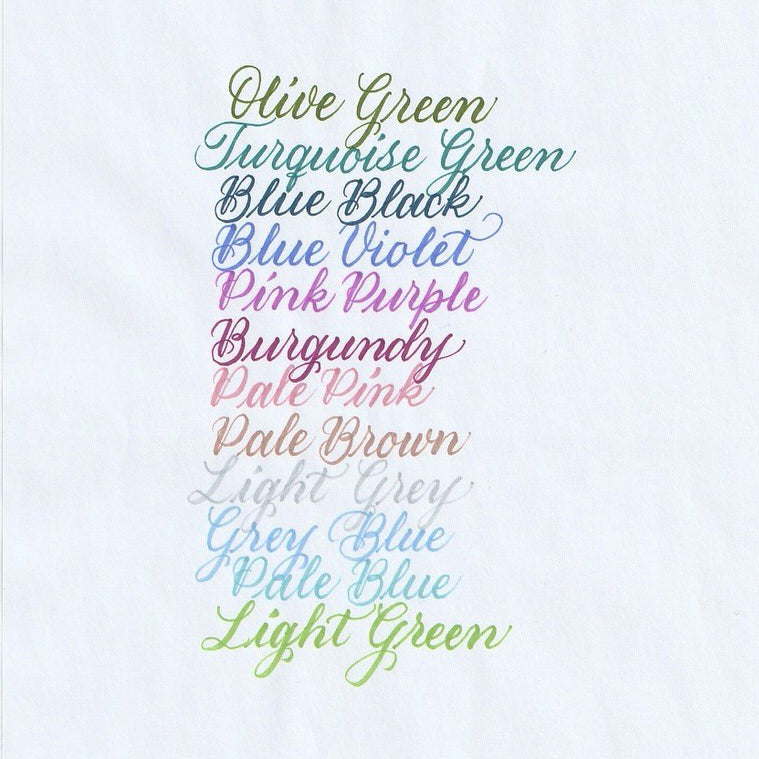 Olive Green
Turquoise Green
Blue Black
Blue Violet
Pink Purple
Burgundy
Pale Pink
Pale Brown
Light Grey
Grey Blue
Pale Blue
Light Green